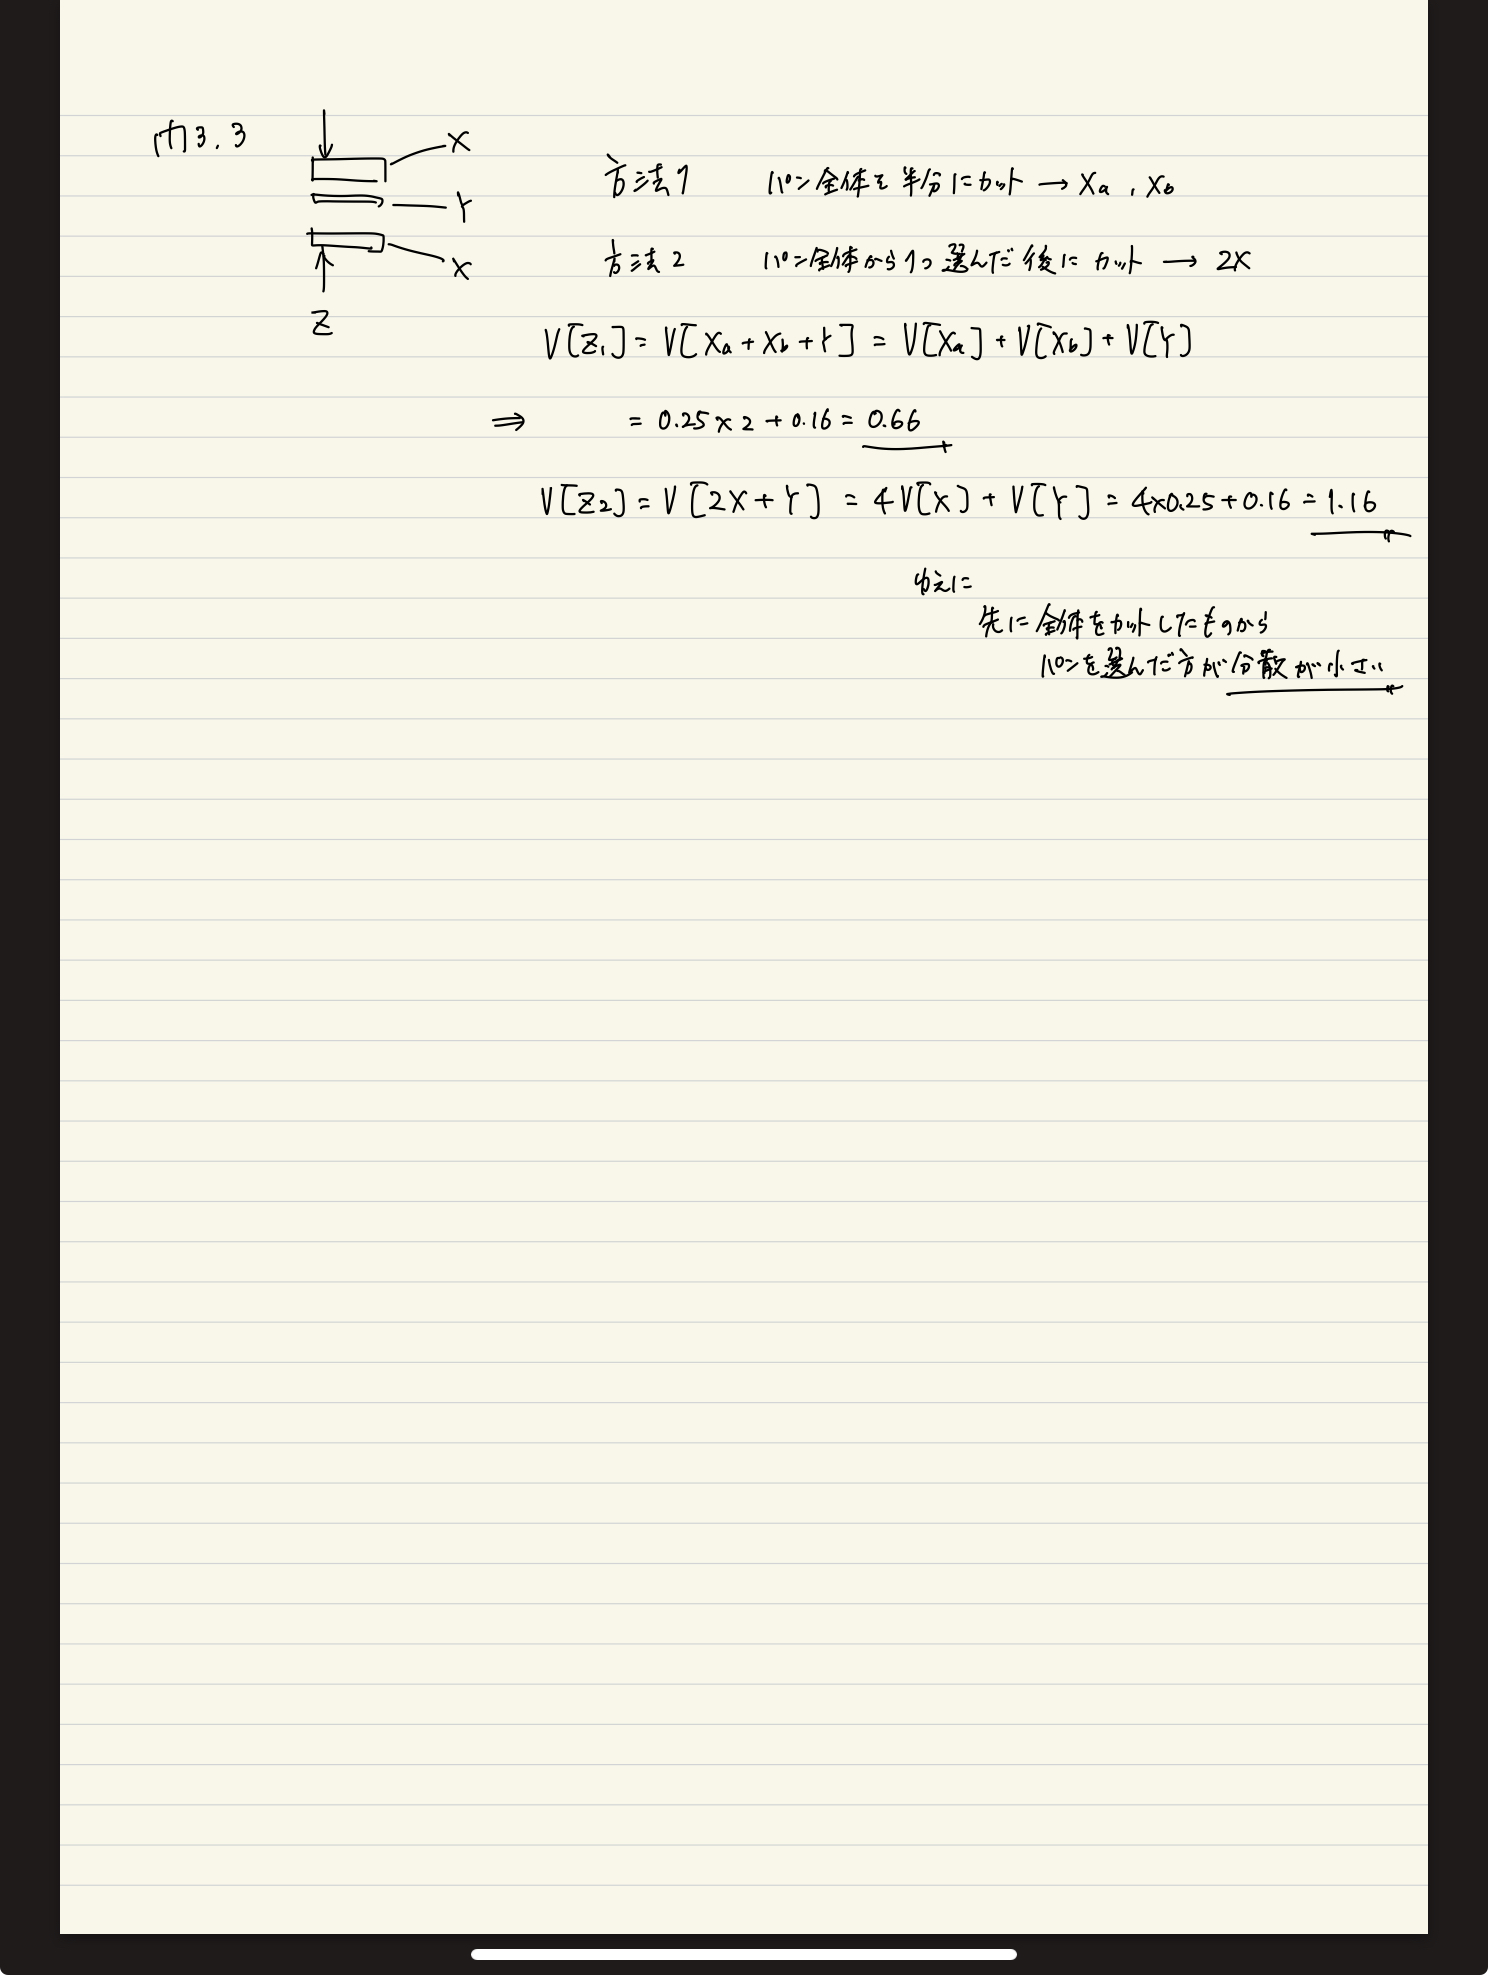 内3.3
X
Y
X
Z
方法1 パン全体を半分にカット → Xa , Xb
方法2 パン全体から1つ選んだ後にカット → 2X
V[Z₁] = V[Xa + Xb + Y] = V[Xa] + V[Xb] + V[Y]
⇒ = 0.25 × 2 + 0.16 = 0.66
V[Z₂] = V[2X + Y] = 4V[X] + V[Y] = 4×0.25 + 0.16 = 1.16
ゆえに
先に全体をカットしたものから
パンを選んだ方が分散が小さい